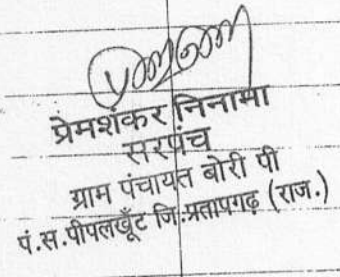 प्रेमशंकर निनामा
सरपंच
ग्राम पंचायत बोरी पी
पं.स.पीपलखूँट जि.प्रतापगढ़ (राज.)